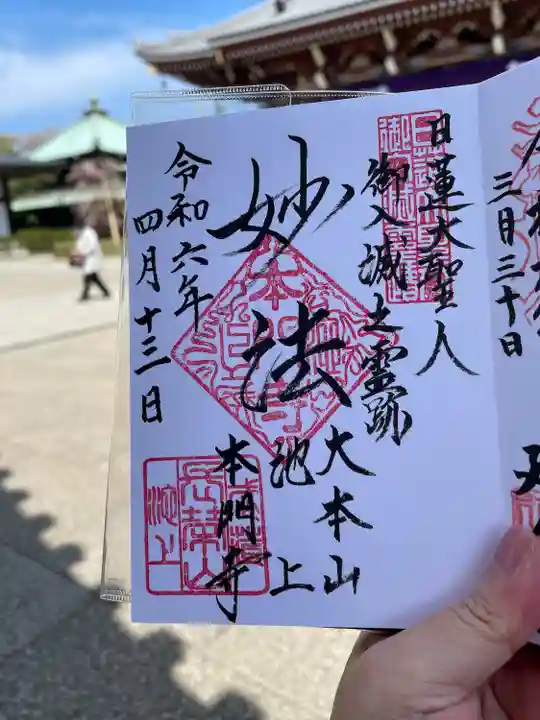 三月三十日
日蓮大聖人
御入滅之靈跡
妙法
大本山
池上
本門寺
令和六年
四月十三日